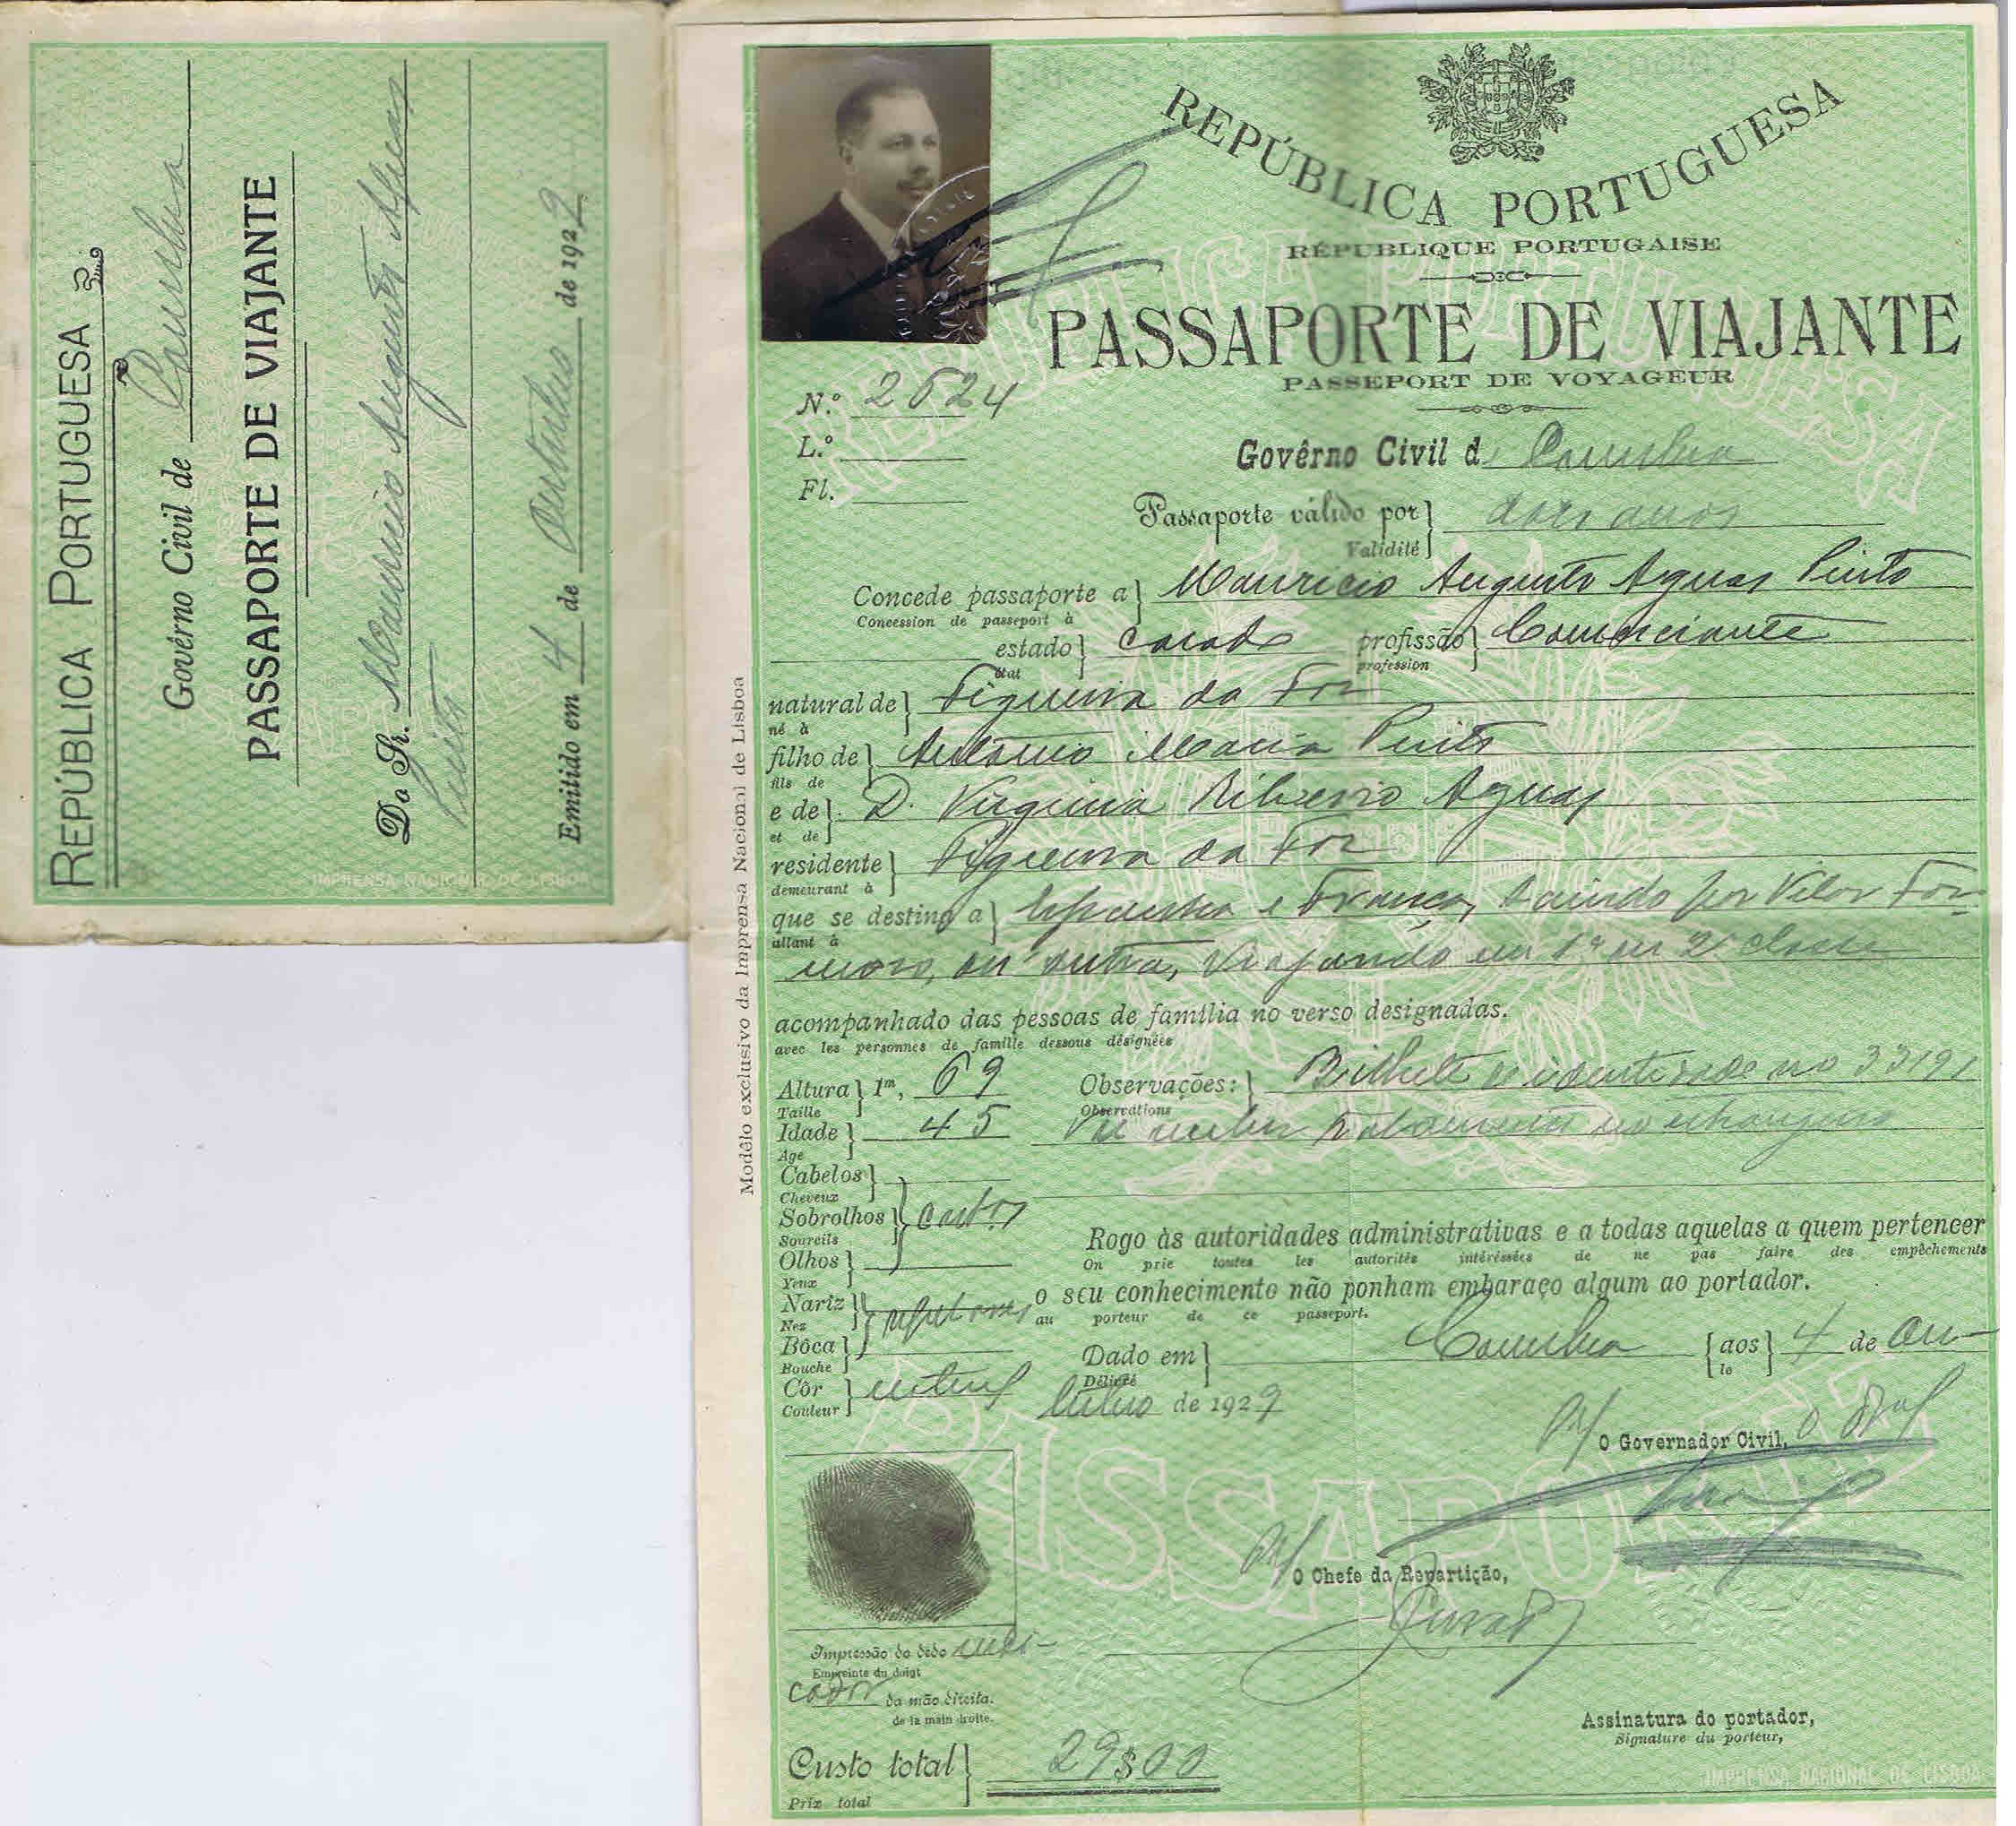 REPÚBLICA PORTUGUESA
Govêrno Civil de Coimbra
PASSAPORTE DE VIAJANTE
Do Sr. Mauricio Augusto Aguas
Pinto
Emitido em 4 de Outubro de 1929
IMPRENSA NACIONAL DE LISBOA
REPÚBLICA PORTUGUESA
RÉPUBLIQUE PORTUGAISE
PASSAPORTE DE VIAJANTE
PASSEPORT DE VOYAGEUR
N.º 2624
L.º
Fl.
Govêrno Civil d Coimbra
Passaporte válido por dois anos
Validité
Concede passaporte a Mauricio Augusto Aguas Pinto
Concession de passeport à
estado casado profissão Comerciante
état profession
natural de Figueira da Foz
né à
filho de Antonio Maria Pinto
fils de
e de D. Virginia Ribeiro Aguas
et de
residente Figueira da Foz
demeurant à
que se destina a Espanha e França, saindo por Vilar For-
allant à
moso, ou outra, viajando em 1ª ou 2ª classe
acompanhado das pessoas de família no verso designadas.
avec les personnes de famille dessous désignées
Altura 1m, 69 Observações: Bilhete de identidade no 33191
Taille Observations
Idade 45 no estrangeiro
Age
Cabelos
Cheveux
Sobrolhos castos
Sourcils
Olhos
Yeux
Nariz regulares
Nez
Bôca
Bouche
Côr natural
Couleur
Rogo às autoridades administrativas e a todas aquelas a quem pertencer
On prie toutes les autorités intéréssées de ne pas faire des empêchements
o seu conhecimento não ponham embaraço algum ao portador.
au porteur de ce passeport.
Dado em Coimbra aos 4 de Ou-
Délivré le
tubro de 1929
P/ O Governador Civil, O
P/ O Chefe da Repartição,
Impressão do dedo indi-
Empreinte du doigt
cador da mão direita.
de la main droite.
Custo total 29$00
Prix total
Assinatura do portador,
Signature du porteur,
IMPRENSA NACIONAL DE LISBOA
Modêlo exclusivo da Imprensa Nacional de Lisboa
REPÚBLICA PORTUGUESA
PASSAPORTE